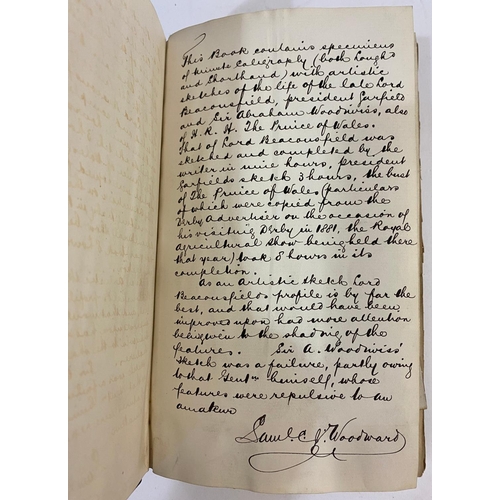 This Book contains specimens
of minute Caligraphy (both Longh
and Shorthand) with artistic
sketches of the life of the late Lord
Beaconsfield, president Garfield
and Sir Abraham Woodiwiss, also
of H. R. H. The Prince of Wales.
That of Lord Beaconsfield was
sketched and completed by the
writer in nine hours, president
Garfields sketch 3 hours, the bust
of The Prince of Wales (particulars
of which were copied from the
Derby Advertiser on the occasion of
his visiting Derby in 1881, the Royal
Agricultural Show being held there
that year) took 8 hours in its
completion.
As an Artistic Sketch Lord
Beaconsfields profile is by far the
best, and that would have been
improved upon had more attention
being given to the shading of the
features. Sir A. Woodiwiss'
sketch was a failure, partly owing
to that Gentn himself, whose
features were repulsive to an
amateur
Saml. C. Y. Woodward